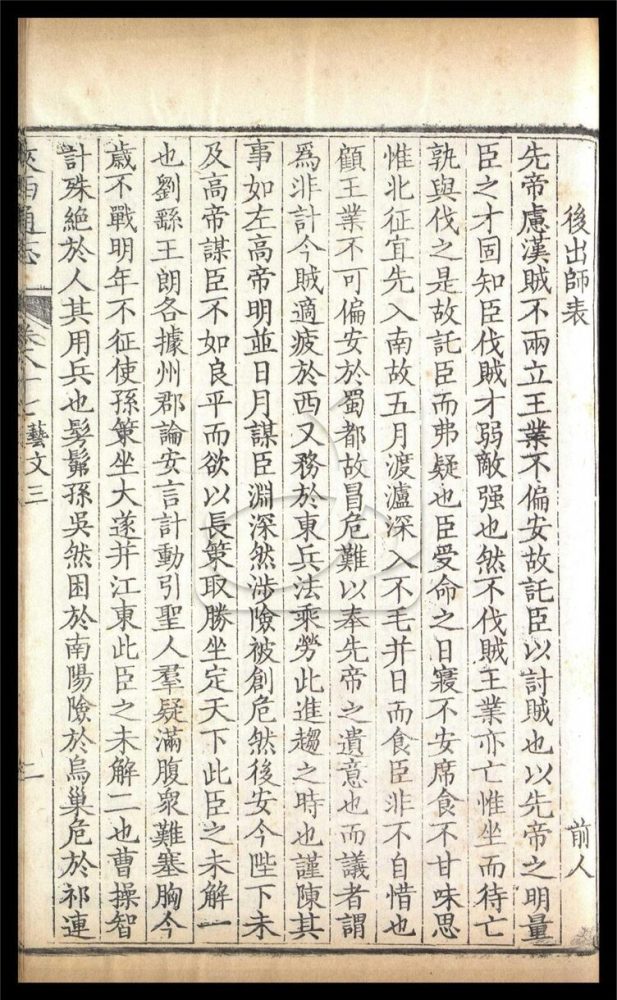 後出師表 前人
先帝慮漢賊不兩立王業不偏安故託臣以討賊也以先帝之明量
臣之才固知臣伐賊才弱敵强也然不伐賊王業亦亡惟坐而待亡
孰與伐之是故託臣而弗疑也臣受命之日寢不安席食不甘味思
惟北征宜先入南故五月渡瀘深入不毛并日而食臣非不自惜也
顧王業不可偏安於蜀都故冒危難以奉先帝之遺意也而議者謂
爲非計今賊適疲於西又務於東兵法乘勞此進趨之時也謹陳其
事如左高帝明並日月謀臣淵深然涉險被創危然後安今陛下未
及高帝謀臣不如良平而欲以長策取勝坐定天下此臣之未解一
也劉繇王朗各據州郡論安言計動引聖人羣疑滿腹衆難塞胸今
歲不戰明年不征使孫策坐大遂并江東此臣之未解二也曹操智
計殊絕於人其用兵也髣髴孫吳然困於南陽險於烏巢危於祁連
陝西通志 卷八十七藝文三 二